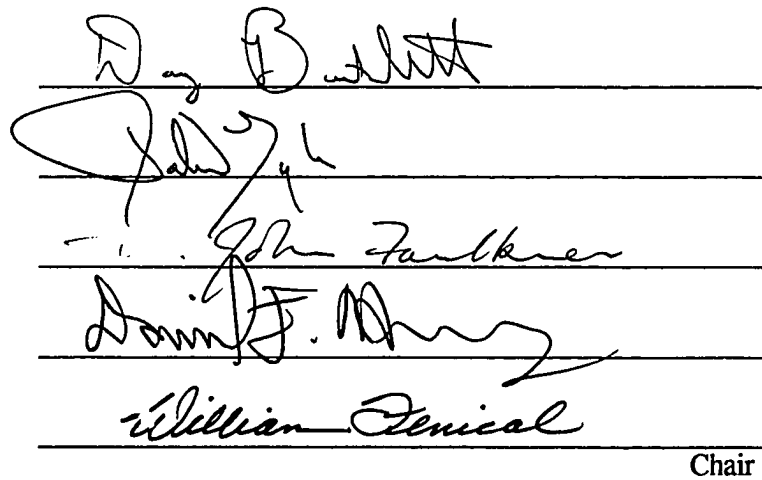 Doug Bartlett
John
D. John Faulkner
David F.
William Fenical
Chair